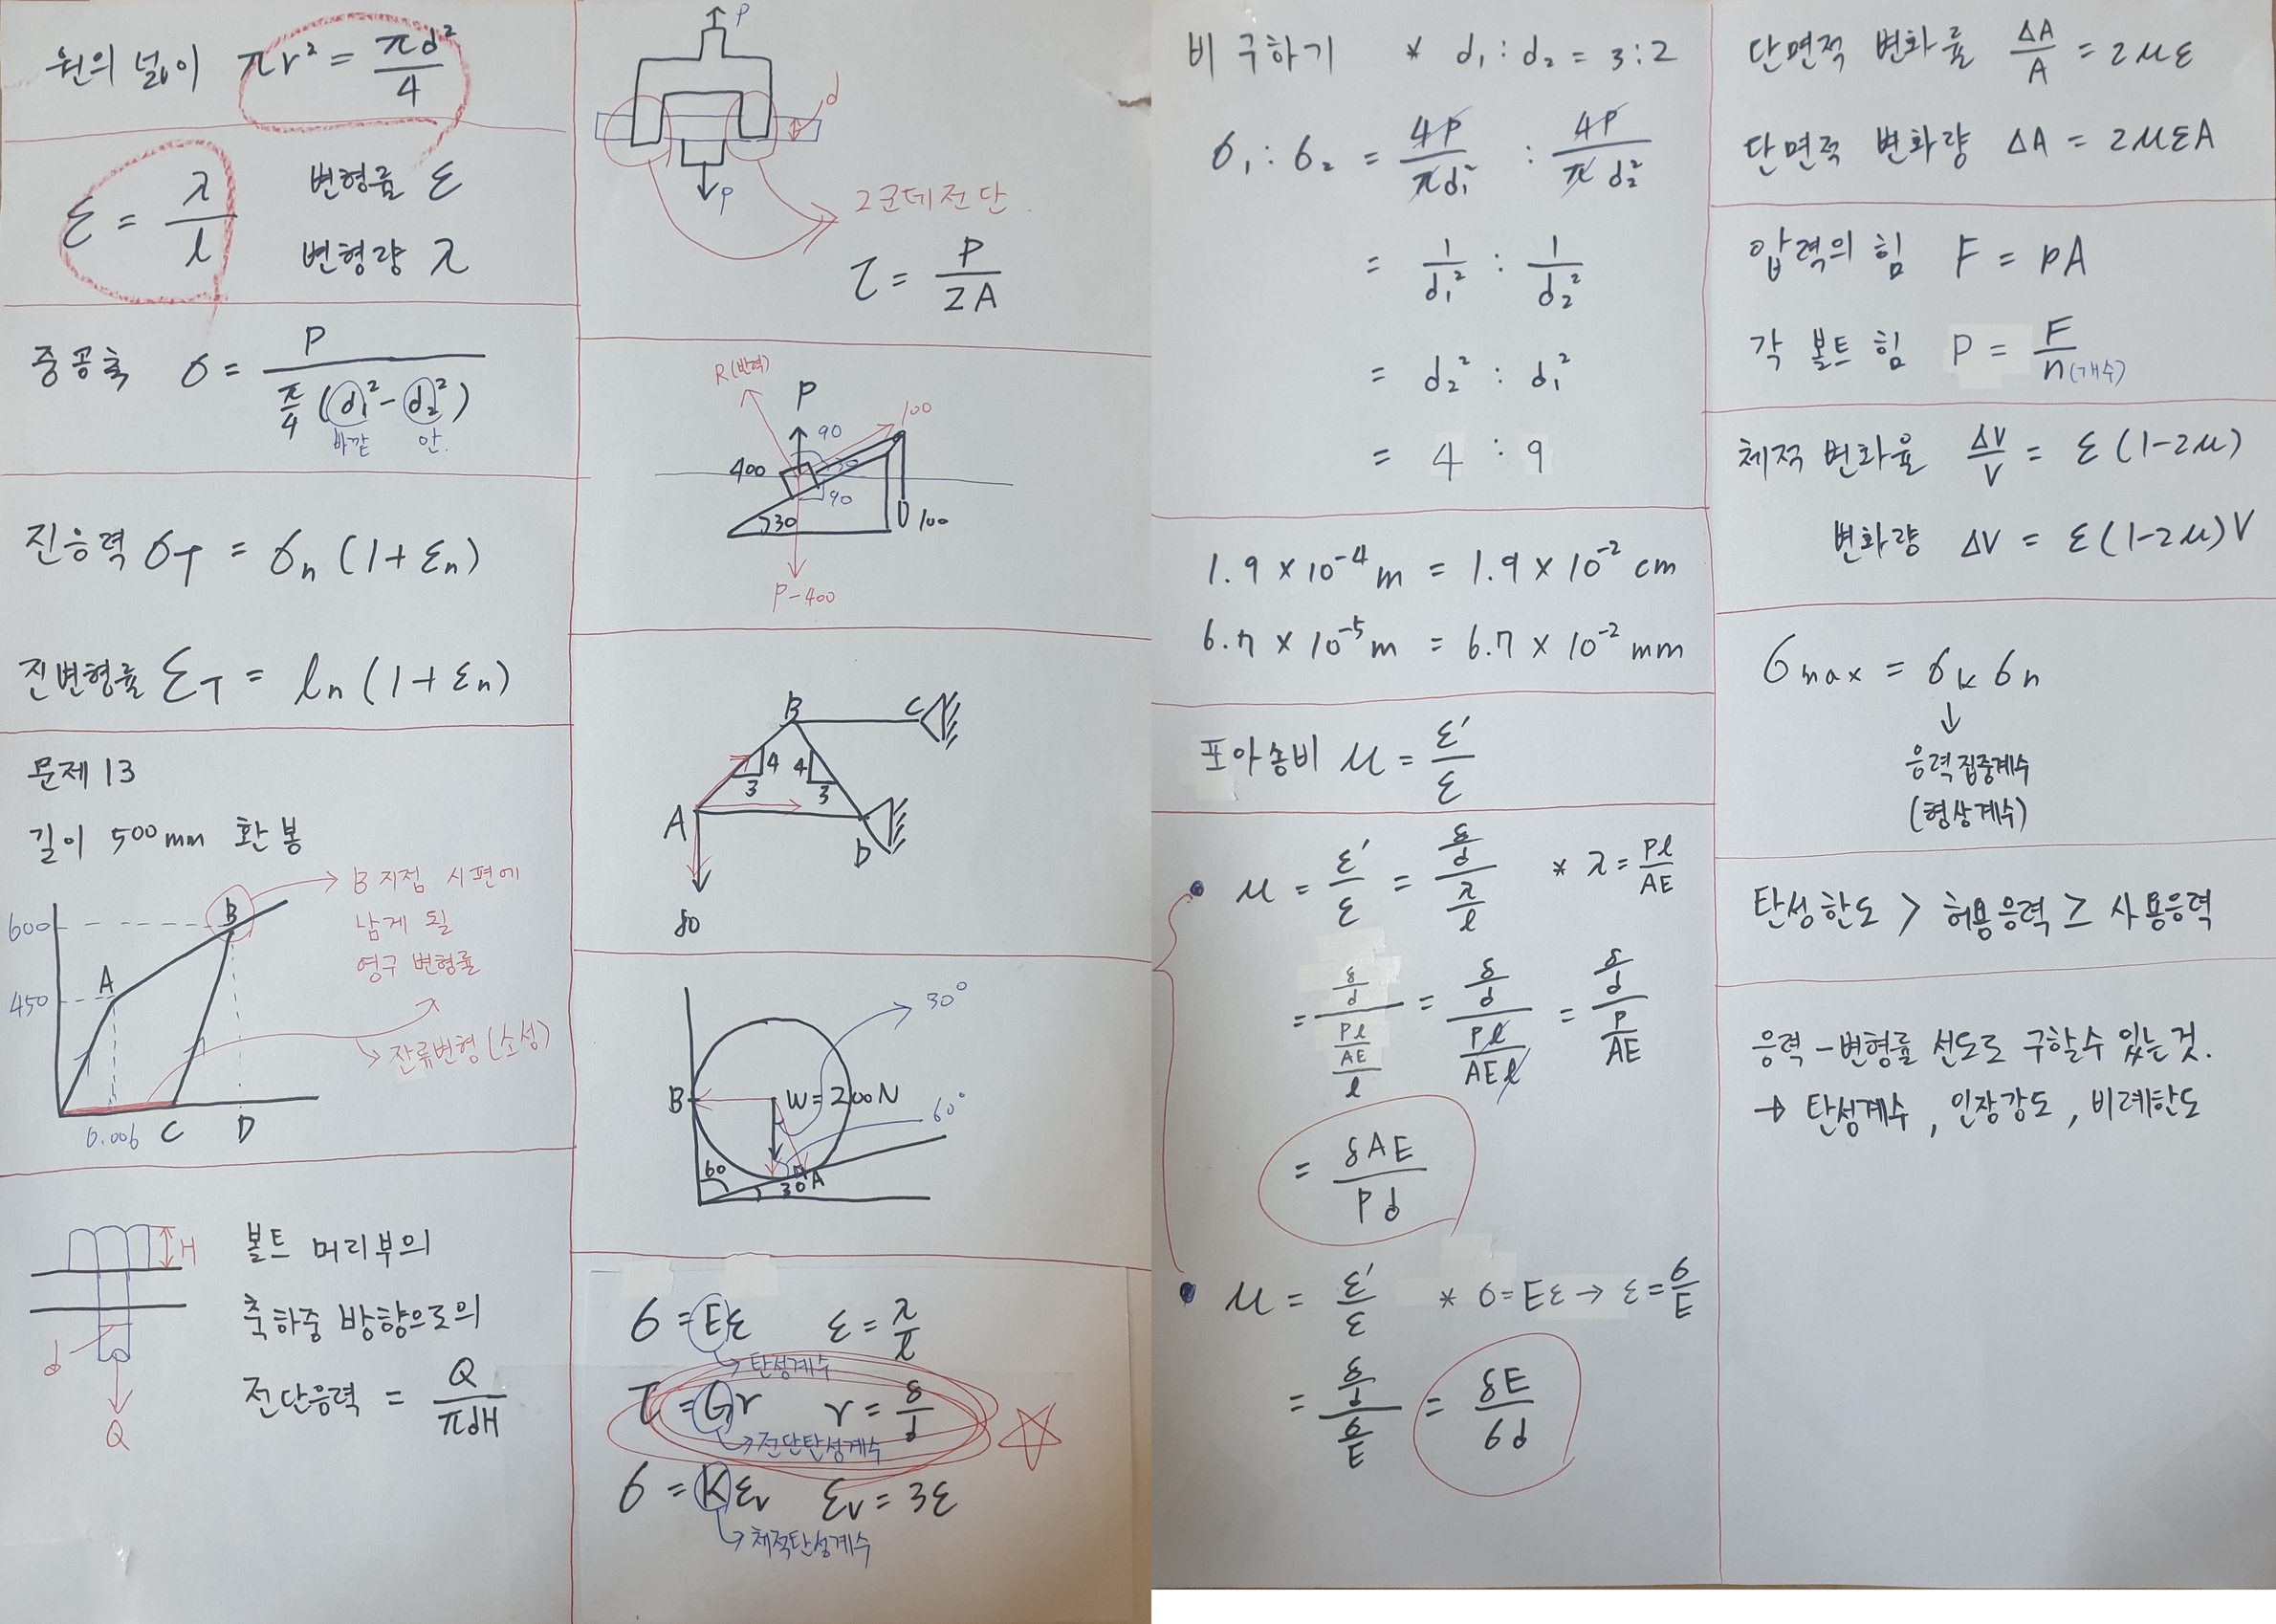 원의 넓이 πr² = πd²/4
ε = λ/l
변형률 ε
변형량 λ
중공축 σ = P / (π/4 (d₁² - d₂²))
바깥 안
진응력 σT = σn (1 + εn)
진변형률 εT = ln (1 + εn)
문제 13
길이 500mm 환봉
600
450
A
B
0.006 C D
B 지점 시편에
남게 될
영구 변형률
잔류변형 (소성)
H
d
Q
볼트 머리부의
축하중 방향으로의
전단응력 = Q/πdH
P
d
P
2군데전단.
τ = P/2A
R(반력)
P
90
100
400
30
90
30
100
P-400
B C
4 4
3 3
A
D
80
30°
B W=200N
60°
60
30 A
σ = Eε ε = λ/l
탄성계수
τ = Gr r = δ/d
전단탄성계수
σ = Kεv εv = 3ε
체적탄성계수
비 구하기 * d₁ : d₂ = 3 : 2
σ₁ : σ₂ = 4P/πd₁² : 4P/πd₂²
= 1/d₁² : 1/d₂²
= d₂² : d₁²
= 4 : 9
1.9 × 10⁻⁴ m = 1.9 × 10⁻² cm
6.7 × 10⁻⁵ m = 6.7 × 10⁻² mm
포아송비 μ = ε'/ε
μ = ε'/ε = (δ/d)/(λ/l) * λ = Pl/AE
= (δ/d)/((Pl/AE)/l) = (δ/d)/(Pl/AEl) = (δ/d)/(P/AE)
= δAE/Pd
μ = ε'/ε * σ = Eε → ε = σ/E
= (δ/d)/(σ/E) = δE/σd
단면적 변화률 ΔA/A = 2με
단면적 변화량 ΔA = 2μεA
압력의 힘 F = pA
각 볼트 힘 P = F/n(개수)
체적 변화율 ΔV/V = ε (1-2μ)
변화량 ΔV = ε (1-2μ) V
σmax = σk σn
↓
응력집중계수
(형상계수)
탄성한도 > 허용응력 ≥ 사용응력
응력 - 변형률 선도로 구할수 있는 것.
→ 탄성계수, 인장강도, 비례한도